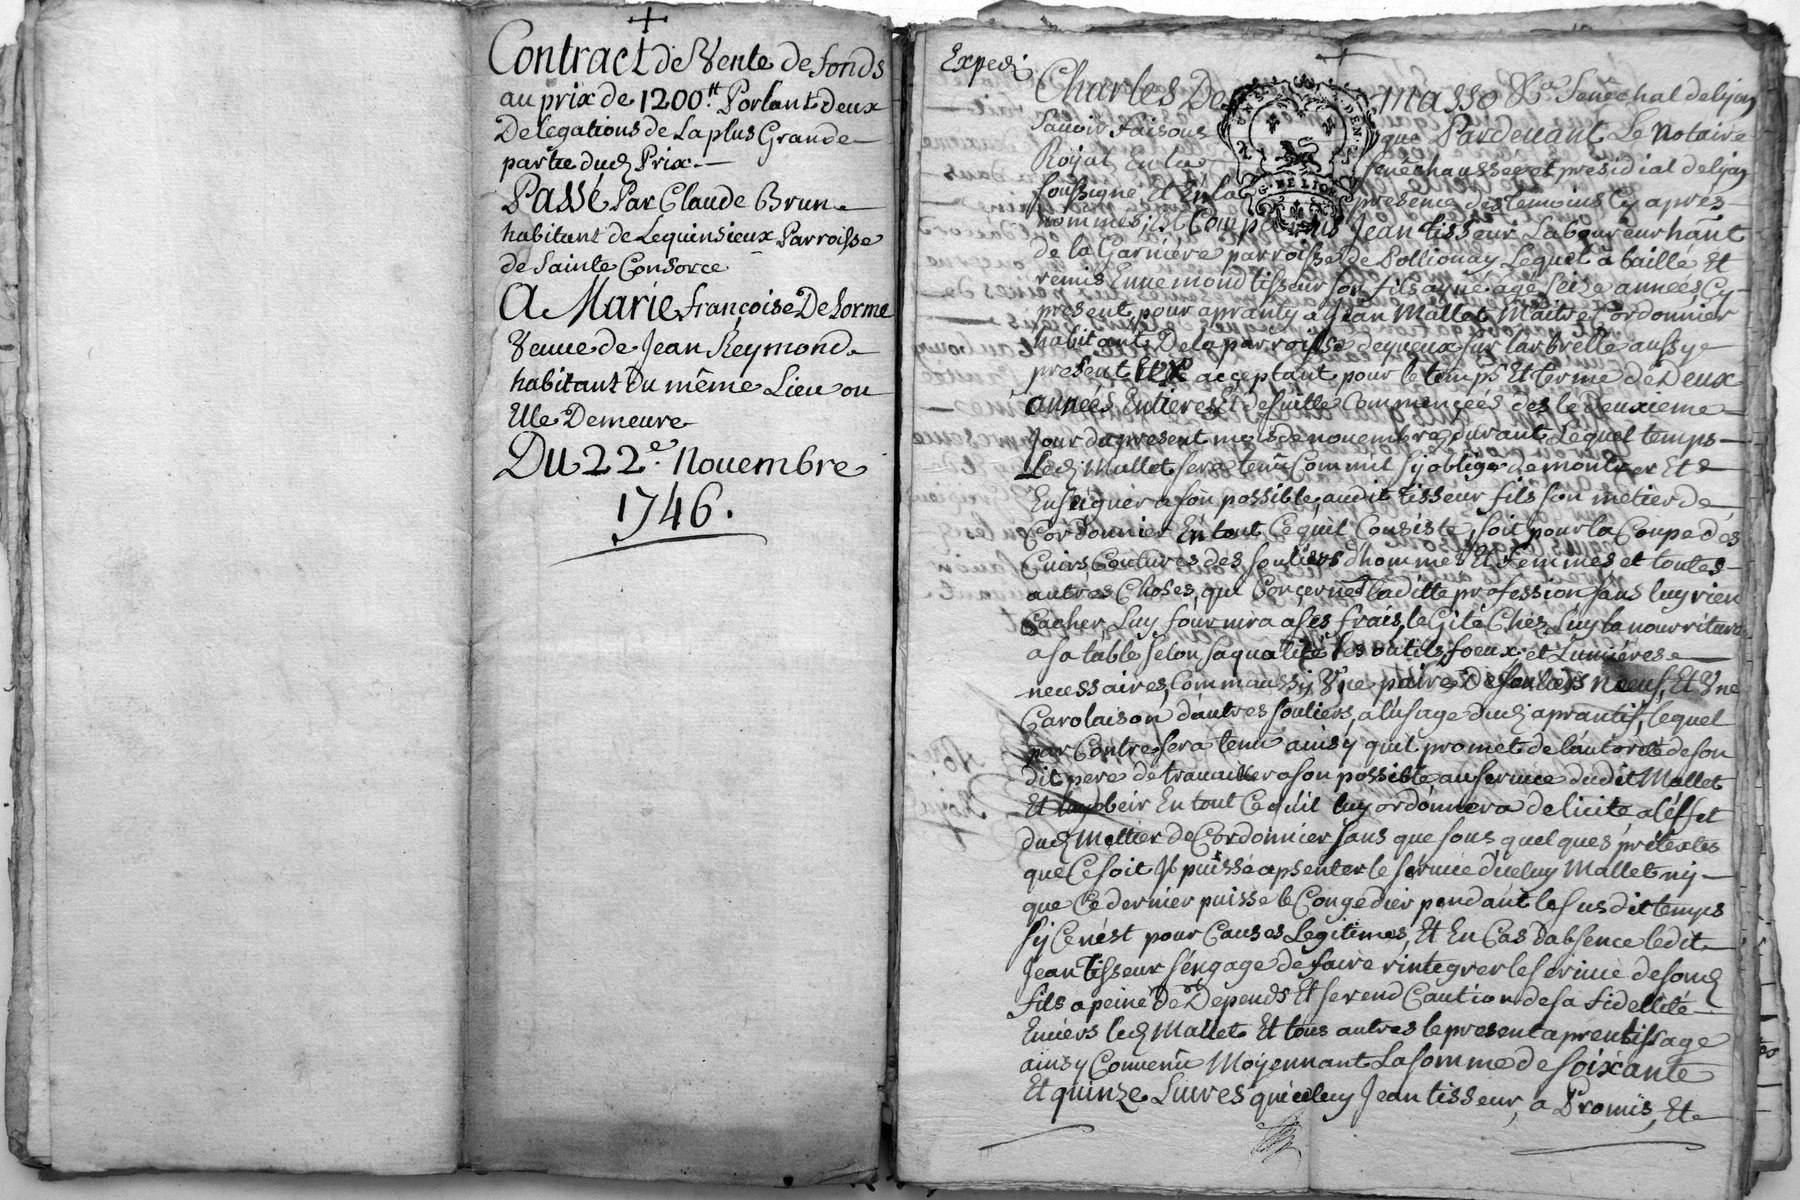 Contract de Vente de fonds
au prix de 1200.tt Portant deux
Delegations de La plus Grande
partie dud. Prix
PASSÉ Par Claude Brun
habitant de Lequinsieux Parroisse
de Sainte Consorce
A Marie françoise De Lorme
Veuve de Jean Reymond
habitant Du même Lieu ou
Elle Demeure
DU 22e. Novembre
1746.
Exped.
Charles De masso &c. Senechal de lyon
Savoir faisons que Pardevant Le Notaire
Royal En la senechaussee et presidial de lyon
soussigné Et En la presence des temoins cy apres
nommes, Est Comparus Jean tisseur Laboureur hant
de la Garniere parroisse de Pollionay Lequel a baillé Et
remis Ennemond tisseur son fils ayné agé seize années Cy
present pour apranty a Jean Mallet Maitre Cordonnier
habitant De la parroisse deyveux sur larbrelle aussy
present Et acceptant pour le temps Et terme de Deux
années Entieres Et de suitte Commencées des le deuxieme
Jour du present mois de novembre, durant Lequel temps
Led. Mallet sera tenu Comm'il s'y oblige de montrer Et
Enseigner a son possible, audit tisseur fils son metier de
Cordonnier En tout Cequil Consiste, soit pour la Coupe des
Cuirs Coutures des souliers d'homme Et Femmes et toutes
autres Choses, qui Concernent laditte profession sans luy rien
Cacher, Luy fournira a ses frais, le Gite Chéz Luy la nourriture
a sa table selon sa qualité les outils, foeux et Lumières
necessaires, Comm'aussy Une paire De souliers neufs, Et Une
Carolaison d'autres souliers, a l'usage dud. aprantif, lequel
par Contre sera tenu ainsy quil promet de l'autorité de son
dit pere de travailler a son possible au service dudit Mallet
Et luy obeir En tout Cequ'il luy ordonnera de licite a l'effet
dud. Mettier de Cordonnier sans que sous quelques pretextes
que Ce soit Il puisse apsenter le service d'iceluy Mallet ny
que Ce dernier puisse le Congedier pendant le susdit temps
s'y Ce n'est pour Causes Legitimes, Et En Cas d'absence ledit
Jean Tisseur s'engage de faire rintegrer le service de sond.
fils a peine de Depends Et se rend Caution de sa fidellité
Envers led. Mallet Et tous autres le present aprentissage
ainsy Convenu Moyennant La somme de soixante
Et quinze Livres qu'iceluy Jean tisseur, a Promis, Et